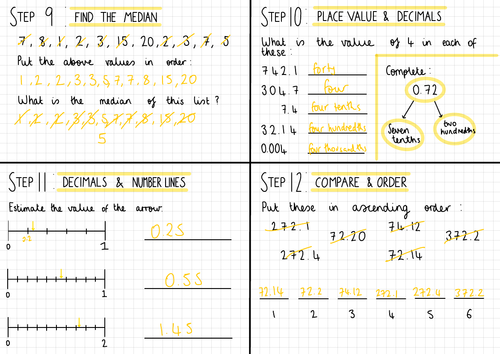 STEP 9 : FIND THE MEDIAN
7, 8, 1, 2, 3, 15, 20, 2, 3, 7, 5
Put the above values in order:
1, 2, 2, 3, 3, 5, 7, 7, 8, 15, 20
What is the median of this list?
1, 2, 2, 3, 3, 5, 7, 7, 8, 15, 20
5
STEP 10 : PLACE VALUE & DECIMALS
What is the value of 4 in each of
these:
742.1 forty
304.7 four
7.4 four tenths
32.14 four hundredths
0.004 four thousandths
Complete:
0.72
Seven
tenths
two
hundredths
STEP 11 : DECIMALS & NUMBER LINES
Estimate the value of the arrow.
0 0.2 1
0.25
0 1
0.55
0 2
1.45
STEP 12 : COMPARE & ORDER
Put these in ascending order :
272.1 72.20 74.12 372.2
272.4 72.14
72.14 72.2 74.12 272.1 272.4 372.2
1 2 3 4 5 6